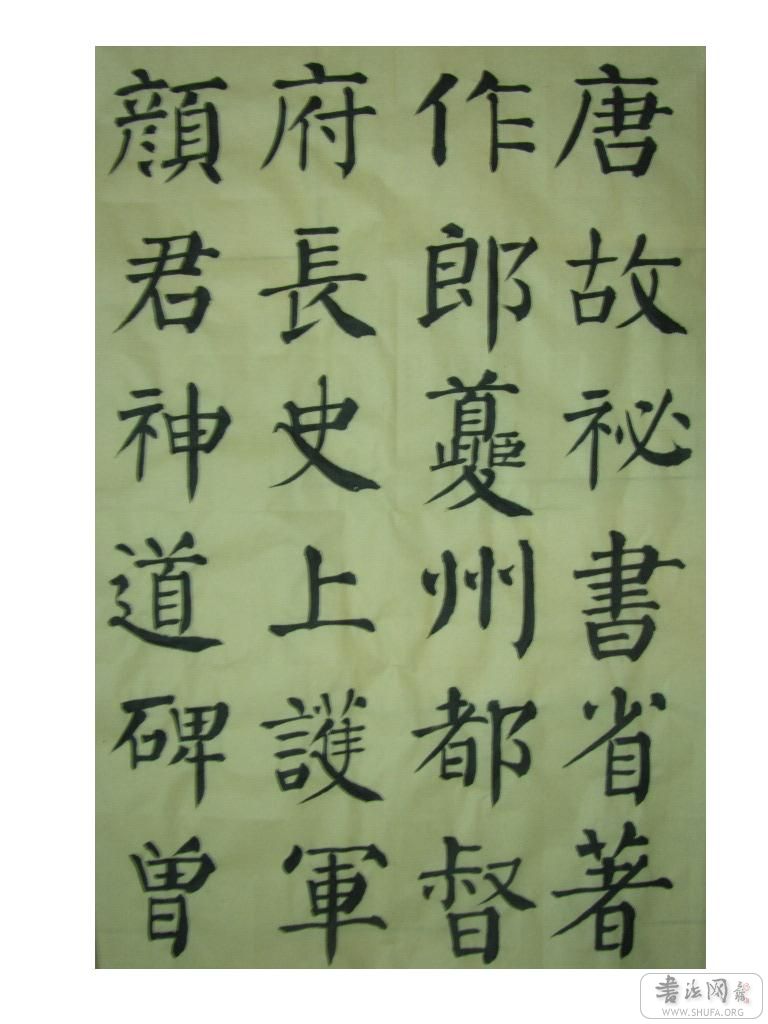 唐故祕書省著
作郎夔州都督
府長史上護軍
顔君神道碑曾
書法网
WWW.SHUFA.ORG